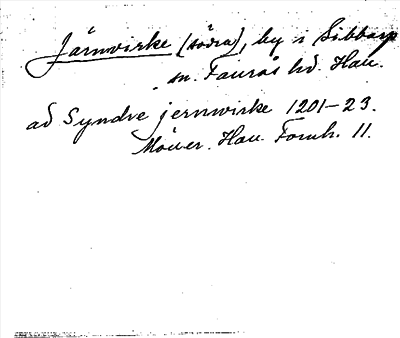 Järnvirke (södra), by i Sibbarp
sn. Faurås hd. Hall.
ad Syndre jernwirke 1201-23.
Möller. Hall. Fornh. 11.